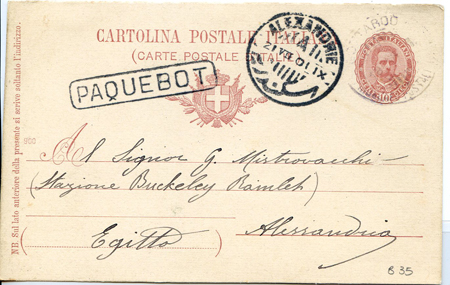 CARTOLINA POSTALE ITALIANA
(CARTE POSTALE D'ITALIE)
ALEXANDRIE
PAQUEBOT
NB. Sul lato anteriore della presente si scrive soltanto l'indirizzo.
Al Signor G. Mistrovacchi
(Stazione Buckeley Ramleh)
Alessandria
(Egitto)
B 35